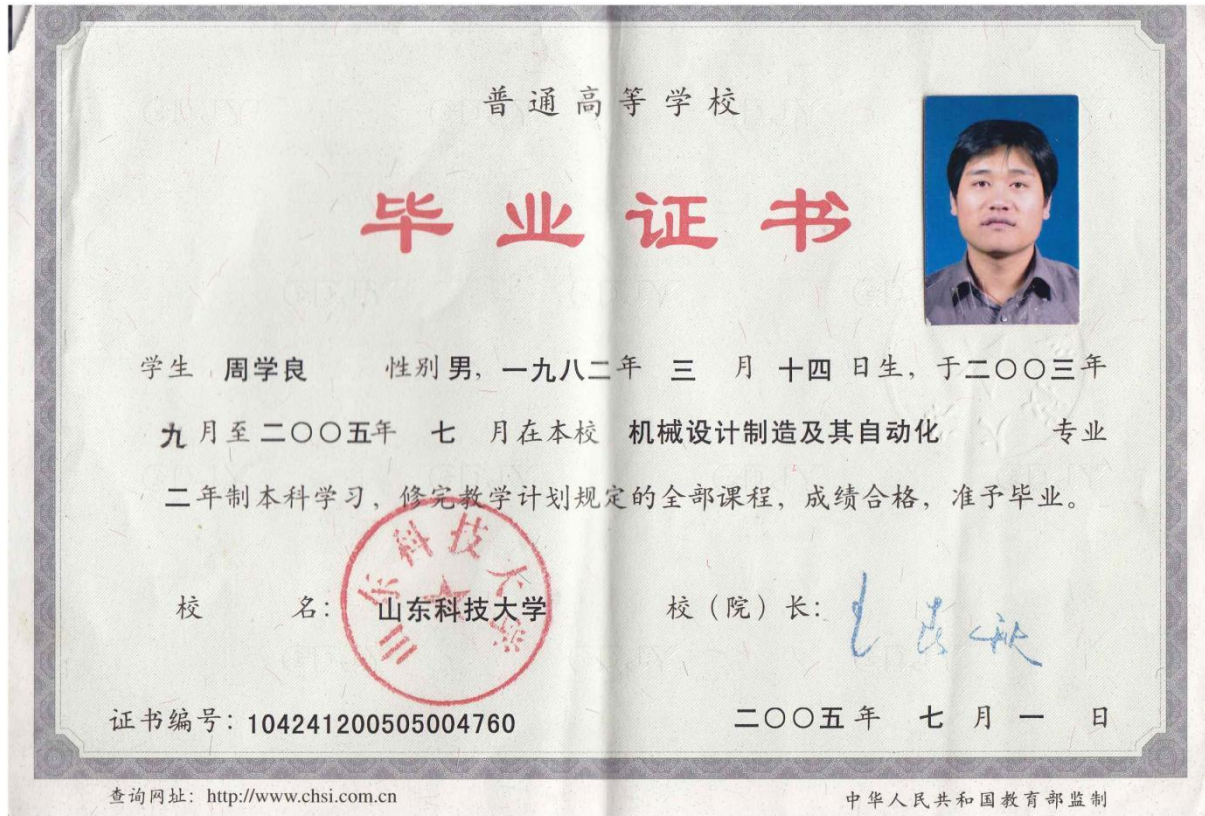 普通高等学校
毕业证书
学生 周学良 性别 男, 一九八二年 三 月 十四 日生, 于二〇〇三年
九月至二〇〇五年 七 月在本校 机械设计制造及其自动化 专业
二年制本科学习, 修完教学计划规定的全部课程, 成绩合格, 准予毕业。
山东科技大学
校 名: 山东科技大学 校(院)长:
证书编号: 104241200505004760 二〇〇五年 七 月 一 日
查询网址: http://www.chsi.com.cn 中华人民共和国教育部监制